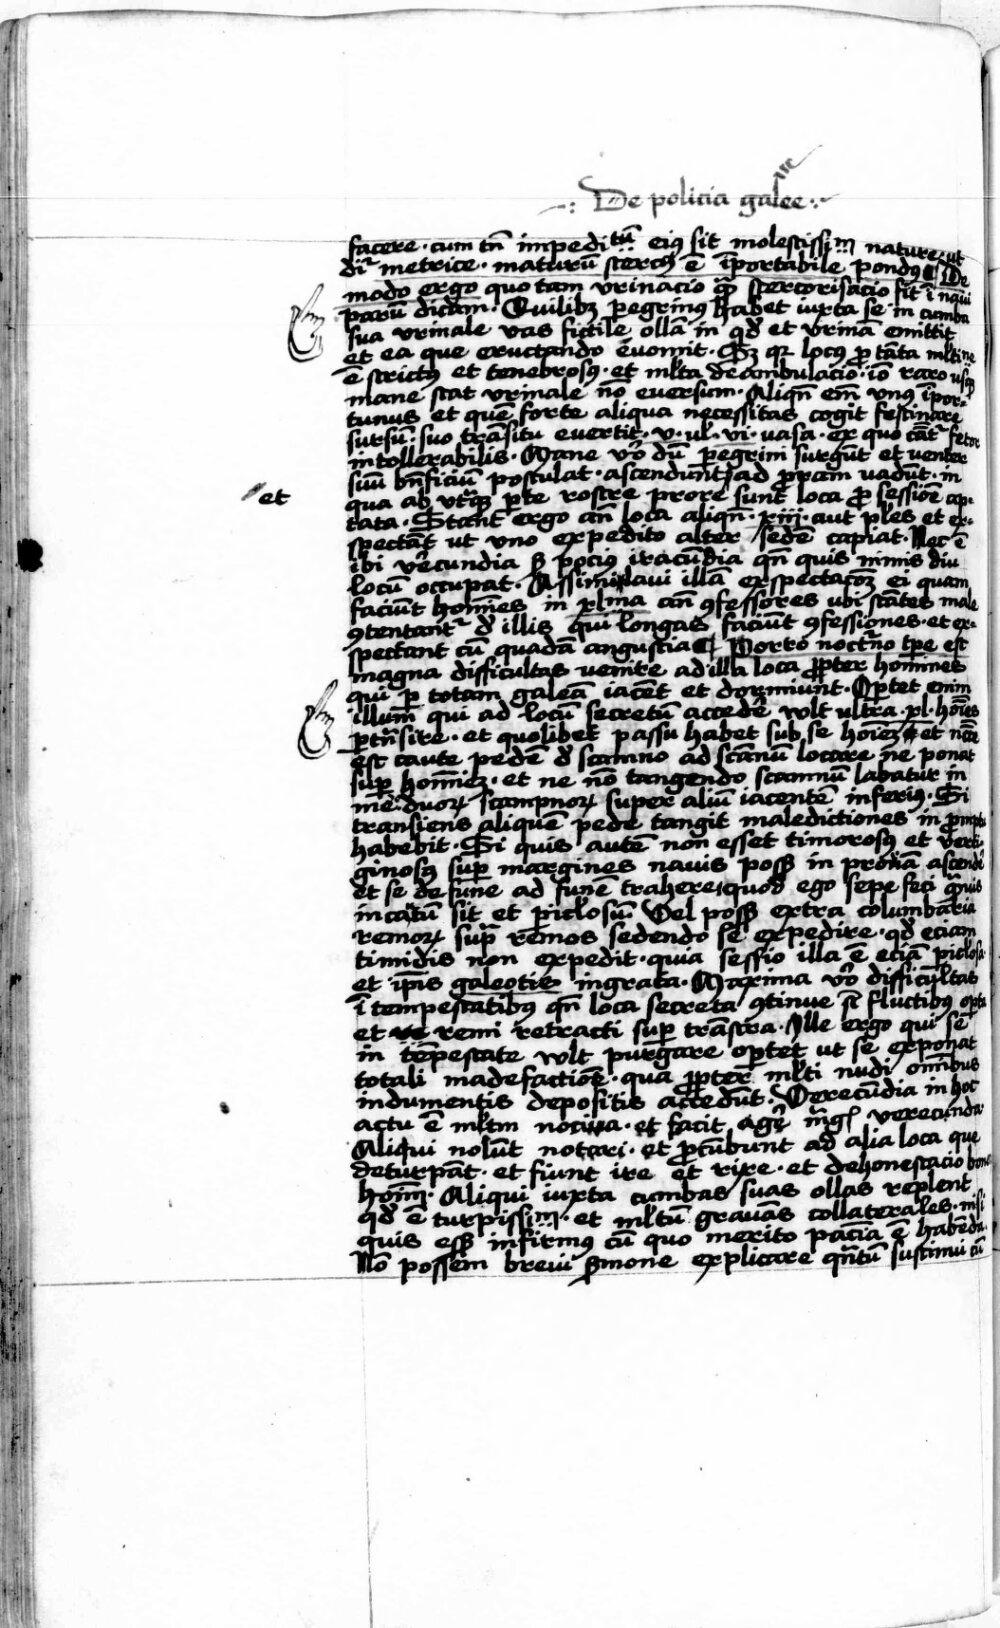 De policia galee
facere · cum tn̄ impeditū eiꝰ sit molestissim̄ nature · ut
dr̄ metrice · maturū stercꝰ ē īportabile pondꝰ ¶ De
modo ergo quo tam vrinacio qᷓ stercorisacio fit ī naui
parū dicam · Quilibꝫ pegrinꝰ habet iuxta se in cumba
sua vrinale vas fictile ollā in qd̄ et vrinā emittit
et ea que eructando euomit · Sꝫ qr locꝰ ꝓ tāta mltine
ē strictꝰ et tenebrosꝰ · et mlta deambulacio · iō raro usqꝫ
mane stat vrinale nō euersum · Aliqn̄ em̄ vnꝰ īpor-
tunus et que forte aliqua necessitas cogit festinare
sursū · suo trāsitu euertit · v · ul · vi · vasa · ex quo cātr fetor
intollerabilis · Mane vō dū pegrini surgūt et venter
suū bn̄ficiū postulat · ascendunt ad ꝓram vadūt · in
et
qua ab vtqꝫ ꝑte rostre prore sunt loca ꝓ sessiōe cap-
tata · Stant ergo an̄ loca aliqn̄ · xiij · aut ples et ex-
spectāt ut vno expedito alter sedē capiat · Nec ē
ibi verecundia sꝫ pocius iracūdia qn̄ quis nimis diu
locū occupat · Assimilaui illā exspectacōꝫ ei quam
faciūt homīes in xlma an̄ ꝯfessores ubi stātes male
ꝯtentantr d̄ illis qui longas faciūt ꝯfessiones · et ex-
spectant cū quadā angustia ¶ Porro noctn̄o tp̄e est
magna difficultas venire ad illa loca ꝓpter homines
qui ꝑ totam galeā iacēt et dormiunt · Oꝑtet enim
illum qui ad locū secretū accedē wlt ultra · xl · hoīes
ꝑtn̄sire · et quolibet passu habet sub se hoīeꝫ et nc̄ē
est caute pedē d̄ scamno ad scānū locare ne ponat
suꝑ homīeꝫ · et ne nō tangendo scamnū labatur in
mē duoꝝ scampnoꝝ super aliū iacentē inferiꝰ · Si
transiens aliquē pede tangit maledictiones in ꝓmptu
habebit · Si quis autē non esset timorosꝰ et verti-
ginosꝰ suꝑ margines nauis possꝫ in prorā ascendē
et se de fune ad funē trahere · quod ego sepe feci qᷓuis
incautū sit et piclosū · Vel possꝫ extra columbaria
remoꝝ supᷓ remos sedendo se expedire · qd̄ eciam
timidis non expedit · quia sessio illa ē eciā piclosa
et ip̄is galeotis ingrata · Maxima vō difficultas
ī tempestatibꝰ qn̄ loca secreta ꝯtinue sī fluctibꝰ opta
et remi retracti suꝑ trāstra · Ille ergo qui se
in tempestate wlt purgare oꝑtet ut se exponat
totali madefactiōe · qua ꝓpter mlti nudi omībus
indumentis depositis accedūt · Verecūdia in hoc
actu ē mltm nociua · et facit agē verecunda
Aliqui nolūt notari · et ꝓrūbunt ad alia loca que
deturpāt · et fiunt ire et rixe · et dehonestacio bonoꝝ
hoīm · Aliqui iuxta cumbas suas ollas replent
qd̄ ē turpissim̄ · et mltū grauās collaterales · nisi
quis essꝫ infirmꝰ cū quo merito pacīa ē habenda
Nō possem breui sermone explicare qn̄tū sustinui cū